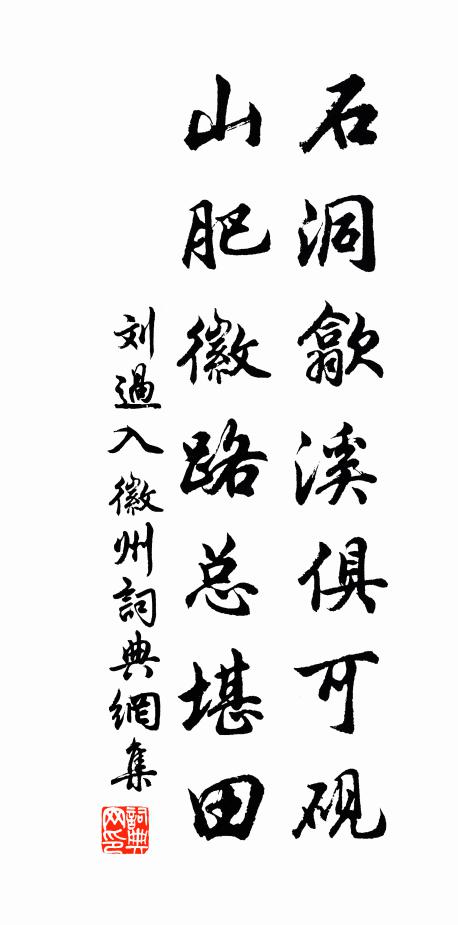 石洞歙溪俱可砚
山肥徽路总堪田
刘過入徽州詞典網集
詞典
网印